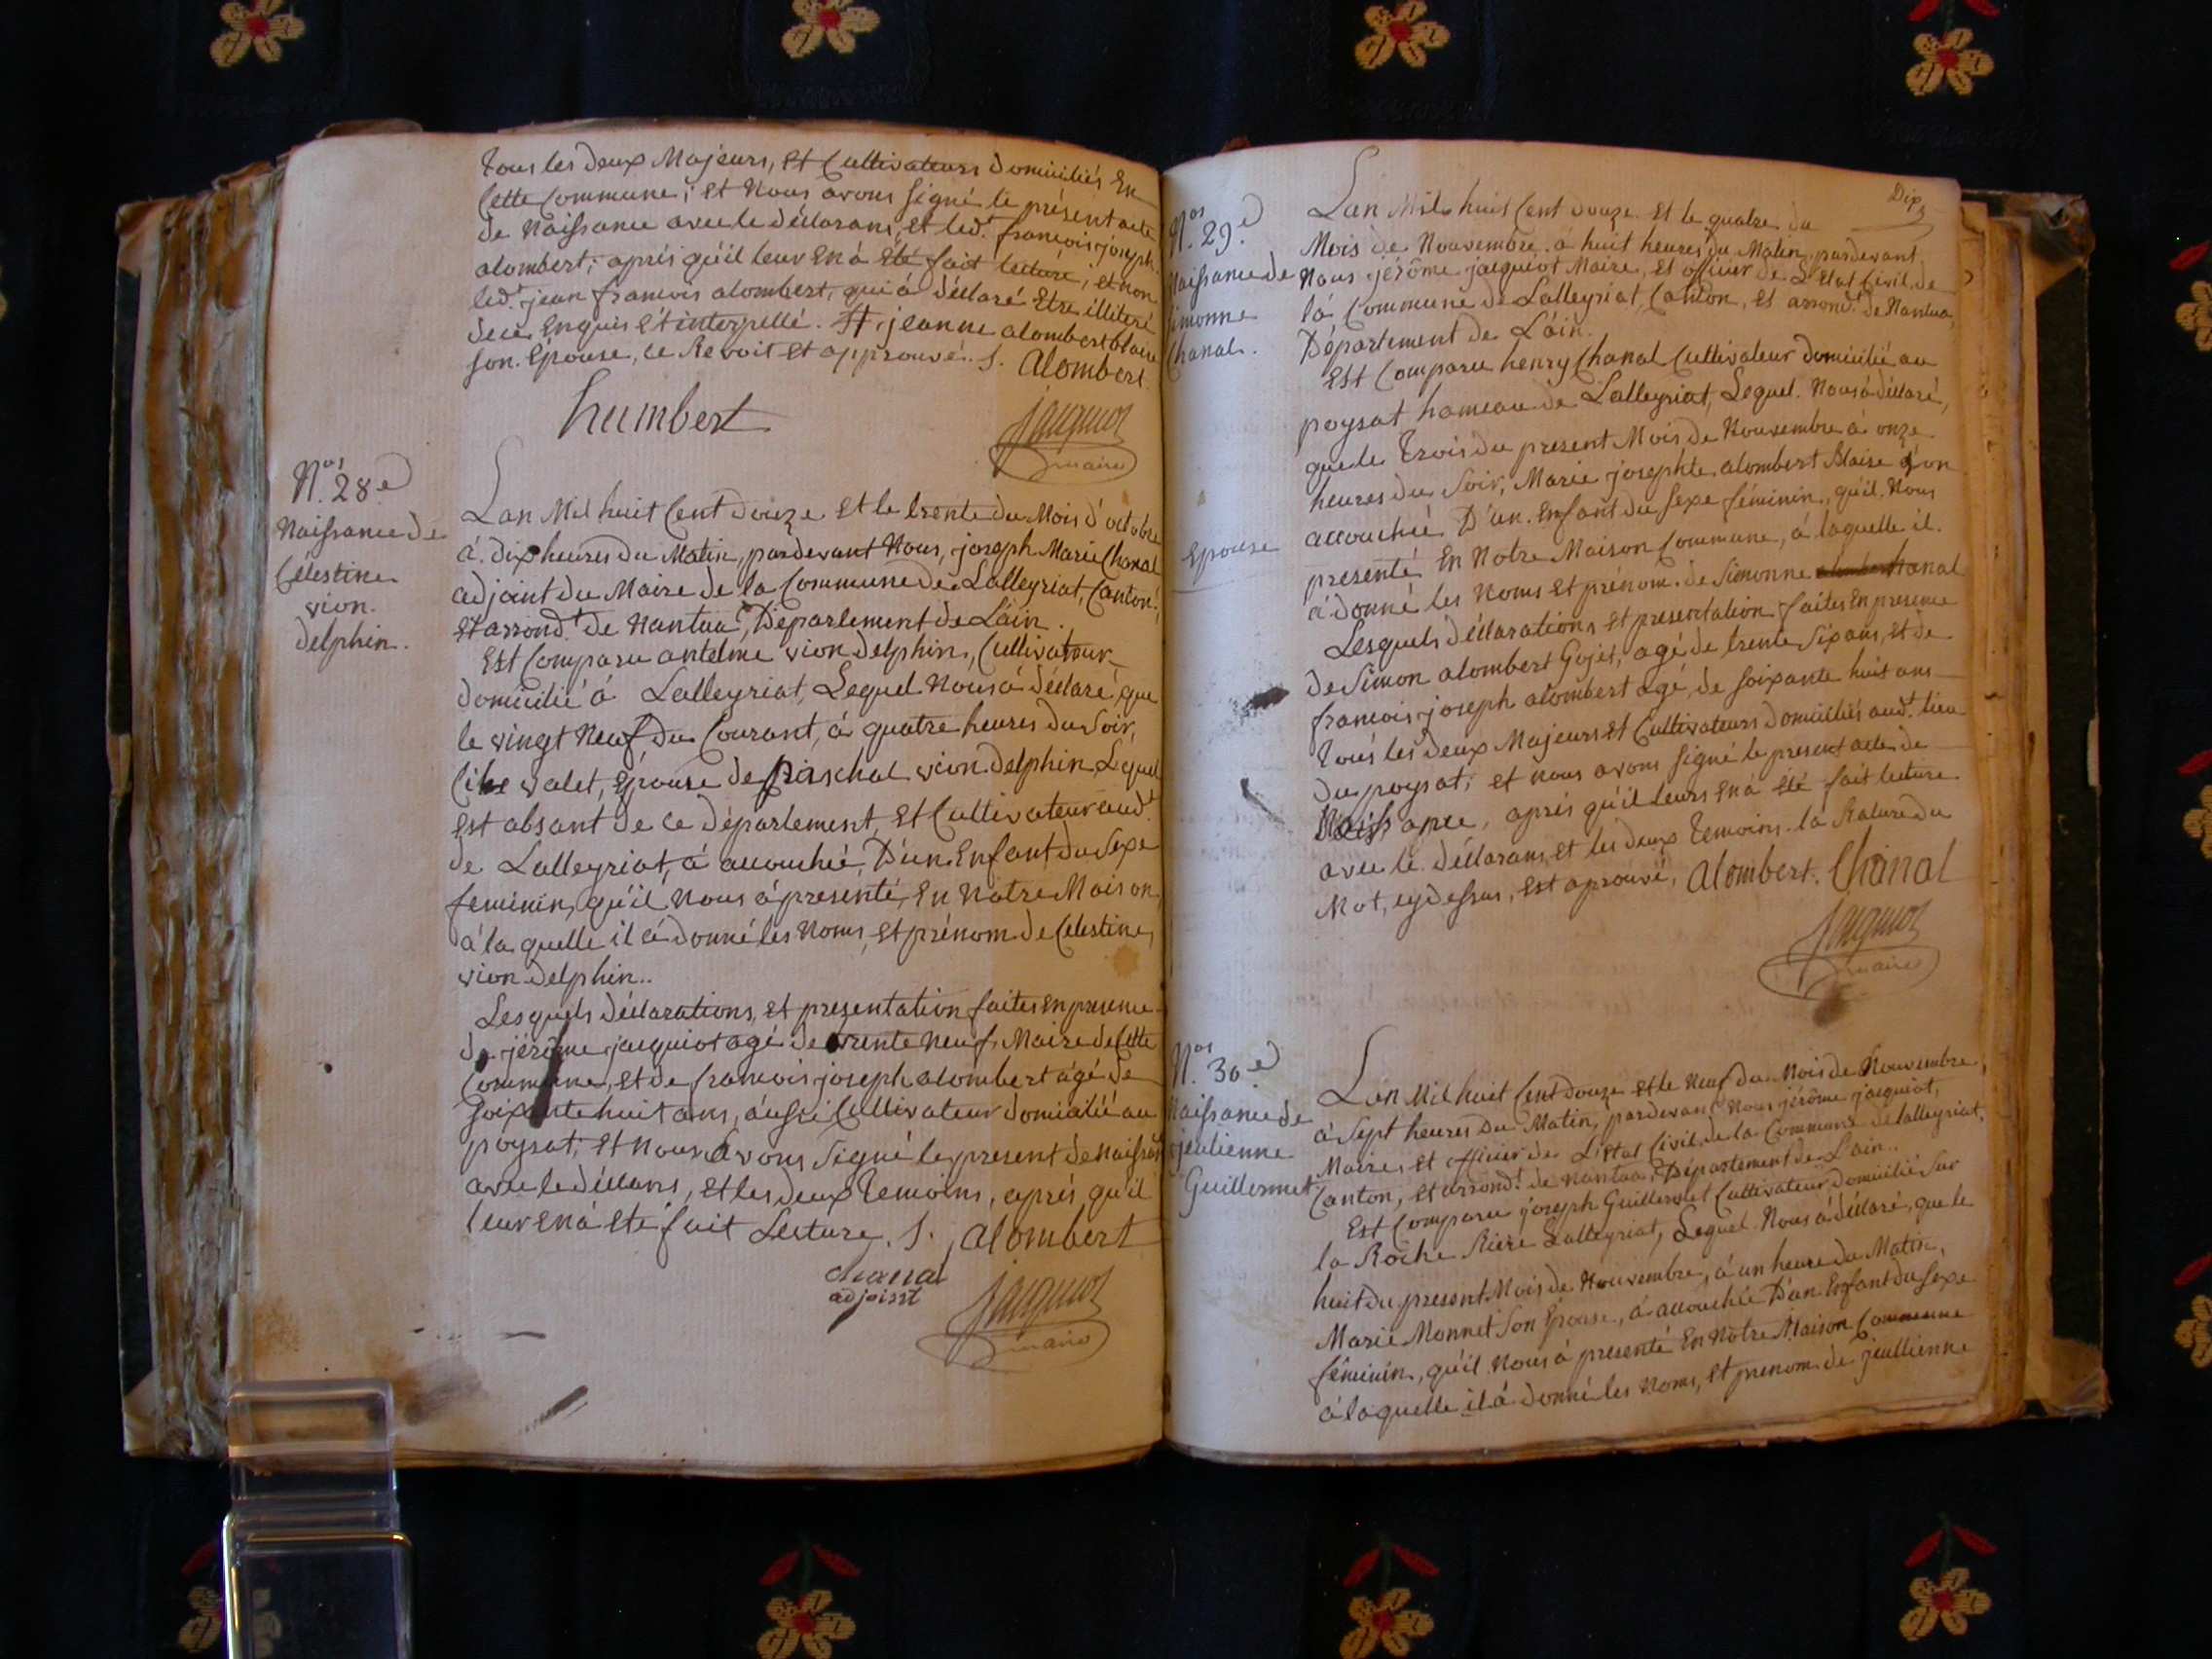 tous les deux Majeurs, et Cultivateurs domiciliés En
Cette Commune; et Nous avons signé le présent acte
de Naissance avec le déclarans, et led.t françois joseph
alombert; aprés qu'il leur en à été fait lecture; et non
led.t jean françois alombert, qui à déclaré Etre illiteré
de ce Enquis et interpellé. jeanne alombert blaise
son Epouse, ce Revoit et approuvé. s. alombert
humbert
jacquiot
maire
N.os 28.e
Naissance de
Célestine
vion.
delphin.
Lan Mil huit Cent douze et le trente du Mois d'octobre
à dix heures du Matin, pardevant Nous, joseph Marie Chanal
adjoint du Maire de la Commune de Lalleyriat, Canton,
et arrond.t de Nantua, Département de Láin.
Est Comparu antelme vion delphin, Cultivateur
domicilié à Lalleyriat, Lequel Nous à déclaré, que
le vingt Neuf du Courant, à quatre heures du Soir,
valet, Epouse de paschal vion delphin Lequel
est absant de ce département, et Cultivateur aud.t
de Lalleyriat, à accouchée, D'un Enfant du Sexe
feminin, qu'il Nous à presenté, En Notre Maison,
à la quelle il à donné les Noms, et prénom de Celestine,
vion delphin..
Lesquels déclarations, et presentation faites en presence
de jérôme jacquiot agé de trente Neuf, Maire de Cette
Commune, et de francois joseph alombert agé de
soixante huit ans, aussi Cultivateur domicilié au
poysat; et nous avons signé le present de Naissance
avec le déclarans, et les deux temoins, aprés qu'il
leur en à été fait Lecture. s. alombert
chanal
adjoint
jacquiot
maire
Dix
N.os 29.e
Naissance de
Simonne
Chanal.
Lan Mil huit Cent douze et le quatre du
Mois de Nouvembre à huit heures du Matin, pardevant
Nous jérôme jacquiot Maire, et officier de L'Etat Civil de
la Commune de Lalleyriat, Canton, et arrond.t de Nantua,
Département de Láin.
Est Comparu henry Chanal Cultivateur domicilié au
poysat hameau de Lalleyriat, Lequel Nous à déclaré,
que le Trois du present Mois de Nouvembre à onze
heures du Soir, Marie josephte alombert Blaise son
Epouse
accouchée D'un Enfant du Sexe féminin, qu'il Nous
presenté En Notre Maison Commune, à laquelle il
à donné les Noms et prénom de Simonne Chanal
Lesquels déclarations et presentation faites En presence
de Simon alombert Gojet, agé de trente Six ans, et de
francois joseph alombert agé de soixante huit ans
Tous les deux Majeurs et Cultivateurs domiciliés aud.t lieu
du poysat; et nous avons signé le present acte de
Naissance, aprés qu'il leurs en à été fait lecture
avec le déclarans, et les deux temoins. la Rature du
Mot, cy dessus, est aprouvé, alombert. Chanal
jacquiot
maire
N.os 30.e
Naissance de
jeulienne
Guillermet
Lan Mil huit Cent douze et le Neuf du Mois de Nouvembre,
à Sept heures Du Matin, pardevant Nous jérôme jacquiot,
Maire, et officier de L'Etat Civil, de la Commune de lalleyriat,
Canton, et arrond.t de Nantua, Département de L'ain..
Est Comparu joseph Guillermet Cultivateur domicilié Sur
la Roche Riere Lalleyriat, Lequel Nous à déclaré, que le
huit du present Mois de Nouvembre, à un heure du Matin,
Marie Monnet Son Epouse, à accouchée D'un Enfant du Sexe
féminin, qu'il Nous à presenté En Notre Maison Commune
à laquelle il à donné les Noms, et prenom de jeullienne